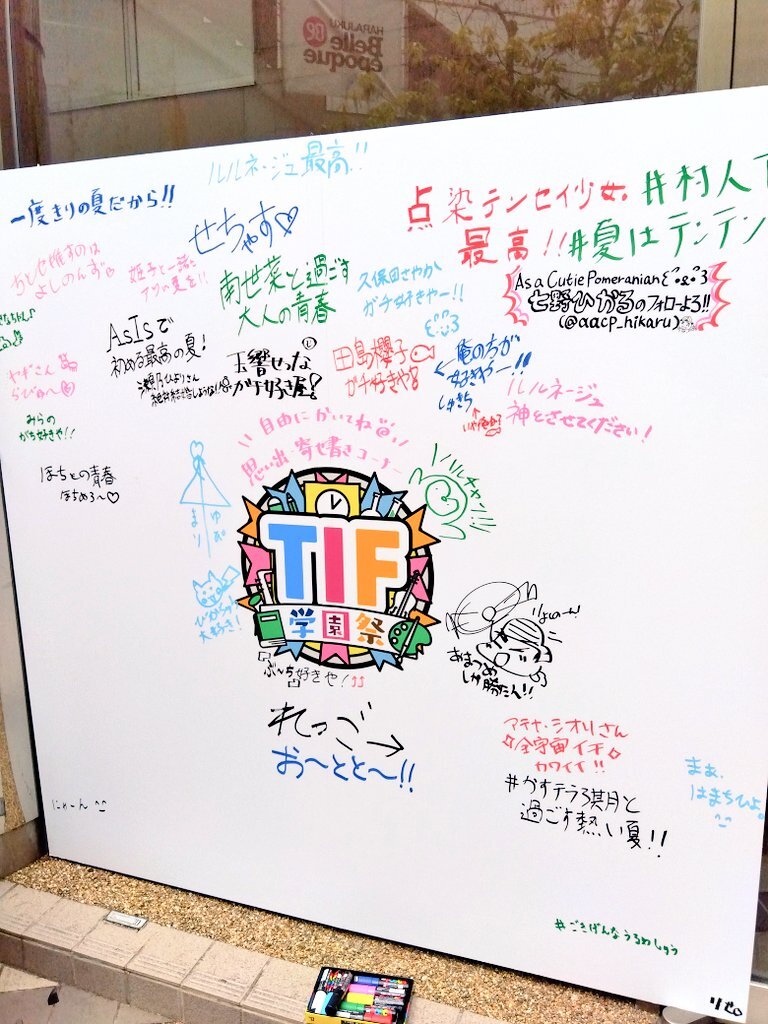 HARAJUKU
Belle
époque
ルルネージュ最高!!
一度きりの夏だから!!
せちゃす♡
点染テンセイ少女。
最高!!
#村人
#夏はテンテン
As a Cutie Pomeranian
七野ひかるのフォローよろ!!
(@aacp_hikaru)
南世菜と過ごす
大人の青春
久保田さやか
ガチ好きやー!!
AsIsで
初める最高の夏!
玉響せつな
ガチ好き屋!
田島櫻子
ガチ好きや
←俺の方が
好きやー!!
ルルネージュ
神とさせてください!
やぎさん
らびゅ〜
みらの
がち好きや!!
ほちとの青春
ほちめろ〜♡
自由にかいてね
思い出・寄せ書きコーナー
TIF
学園祭
リルチャン!!
まり
ゆあ
ぴかちゅ
大好き!
ぶーち好きや!
りょのーん!
あまつめ
しか勝たん!!
れっつご→
お〜とと〜!!
アテナ・シオリさん
全宇宙イチ
カワイイ!!
#かすテラ3期月と
過ごす熱い夏!!
まぁ、
はまちひよ。
にゃーん ^^
#ごきげんなうるめしゅう
リゼ。